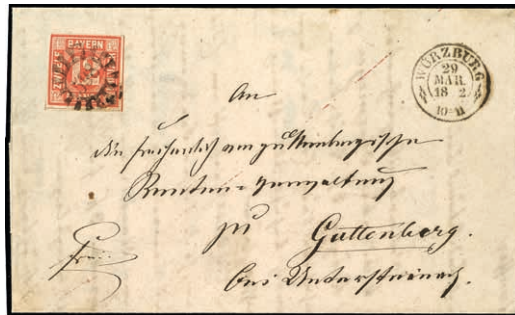 BAYERN
ZWÖLF
WÜRZBURG
29
MÄR.
18 2.
10-11
An
die freiherrlich von guttenbergische
Renten-Verwaltung
zu
Guttenberg.
bei Untersteinach.
Frei.